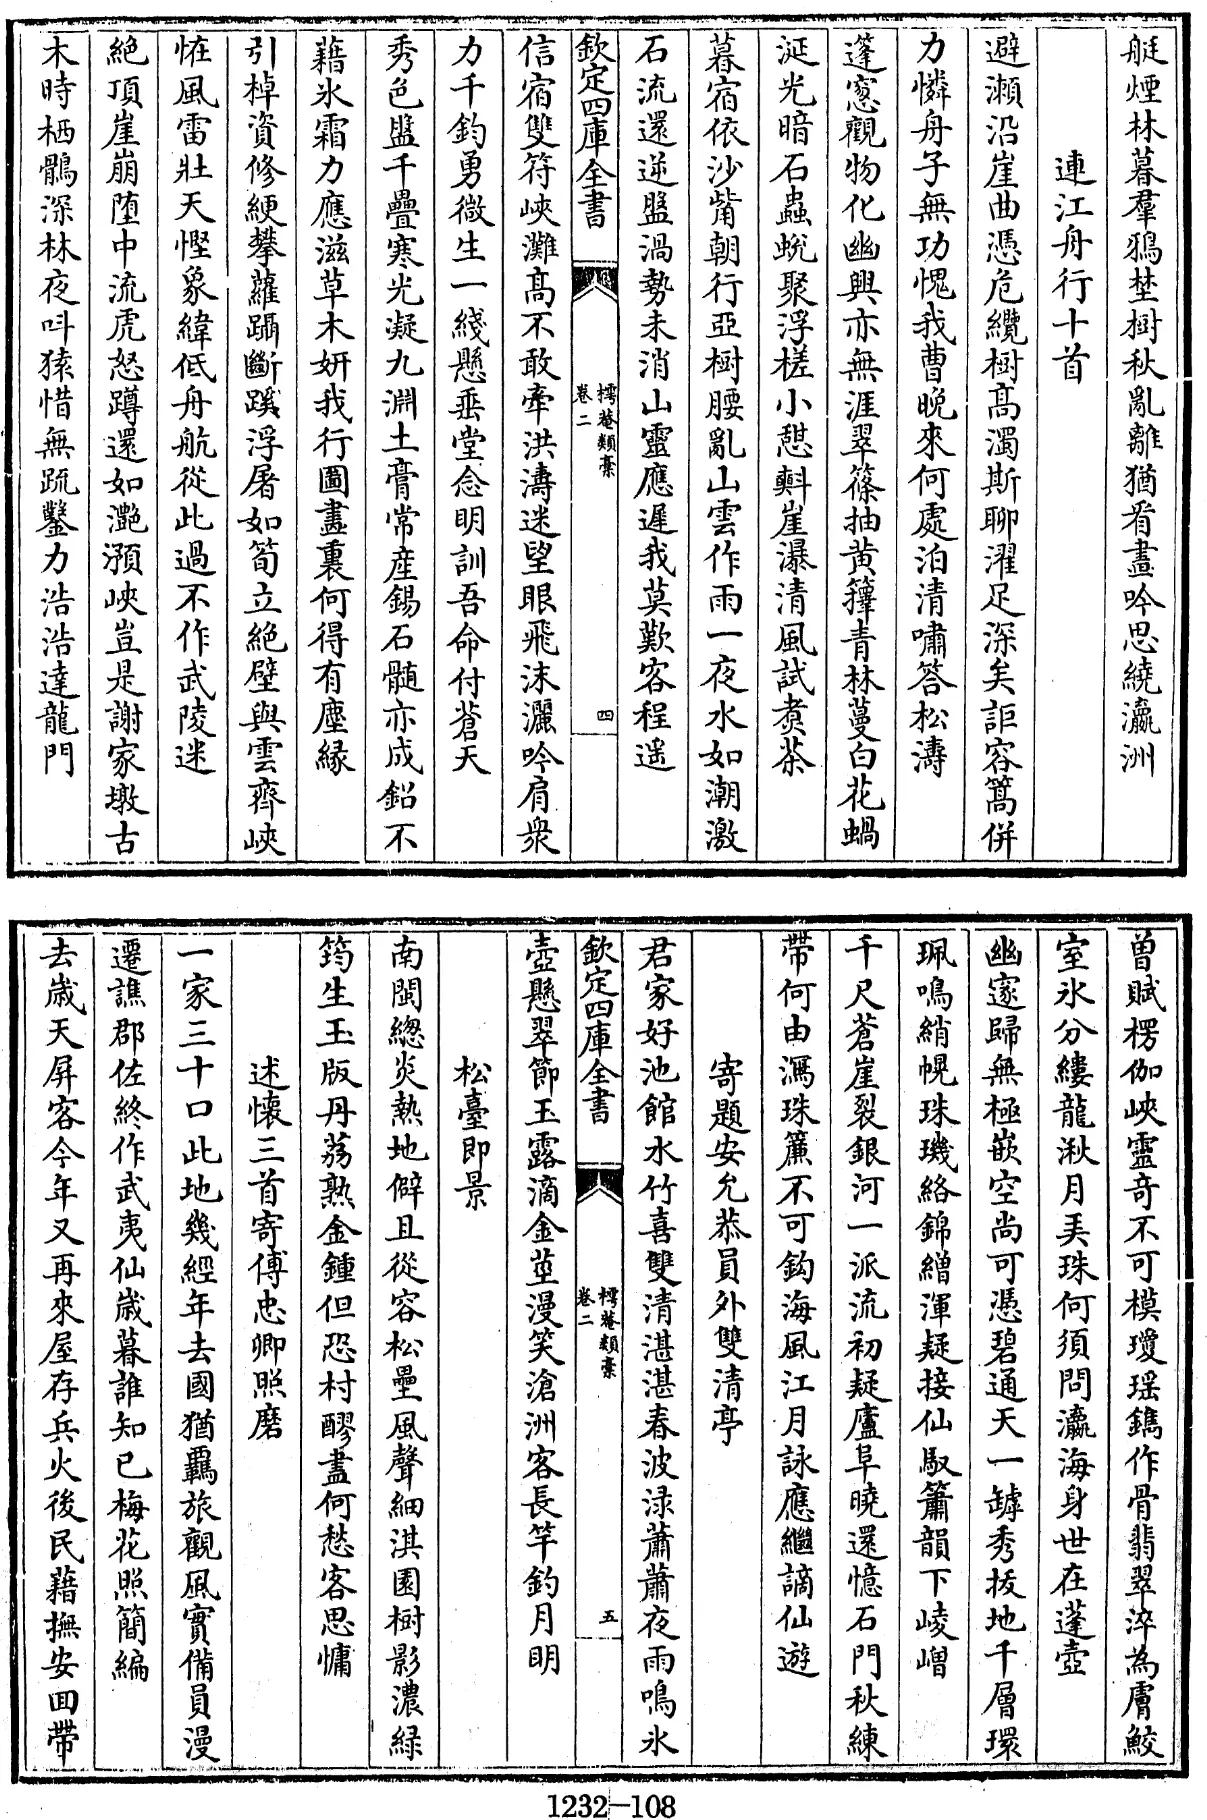 艇煙林暮羣鴉埜樹秋亂離猶看畫吟思繞瀛洲
連江舟行十首
避瀬沿崖曲憑危纜樹髙濁斯聊濯足深矣詎容篙併
力憐舟子無功愧我曹晚來何處泊清嘯答松濤
篷窻觀物化幽興亦無涯翠篠抽黄籜青林蔓白花蝸
涎光暗石蟲蛻聚浮槎小憇斡崖瀑清風試煑茶
暮宿依沙觜朝行亞樹腰亂山雲作雨一夜水如潮激
石流還逆盤渦勢未消山靈應遲我莫歎客程遥
欽定四庫全書
樗菴類藁
卷二
四
信宿雙符峽灘髙不敢牽洪濤迷望眼飛沫灑吟肩衆
力千鈞勇微生一綫懸垂堂念明訓吾命付蒼天
秀色盤千疊寒光凝九淵土膏常産錫石髄亦成鉛不
藉氷霜力應滋草木妍我行圖畫裏何得有塵縁
引棹資修綆攀蘿躡斷蹊浮屠如筍立絶壁與雲齊峽
恠風雷壯天慳象緯低舟航從此過不作武陵迷
絶頂崖崩堕中流虎怒蹲還如灔澦峽豈是謝家墩古
木時栖鶻深林夜呌猿惜無疏鑿力浩浩達龍門
曽賦楞伽峽靈竒不可模瓊瑶鐫作骨翡翠淬為膚鮫
室氷分縷龍湫月弄珠何須問瀛海身世在蓬壺
幽邃歸無極嵌空尚可憑碧通天一罅秀拔地千層環
珮鳴綃幌珠璣絡錦繒渾疑接仙馭簫韻下崚嶒
千尺蒼崖裂銀河一派流初疑廬阜曉還憶石門秋練
帶何由濯珠簾不可鈎海風江月詠應繼謫仙遊
寄題安允恭員外雙清亭
君家好池館水竹喜雙清湛湛春波渌蕭蕭夜雨鳴氷
欽定四庫全書
樗菴類藁
卷二
五
壺懸翠節玉露滴金莖漫笑滄洲客長竿釣月明
松臺即景
南閩緫炎熱地僻且從容松壘風聲細淇園樹影濃緑
筠生玉版丹荔熟金鍾但恐村醪盡何愁客思慵
述懷三首寄傅忠卿照磨
一家三十口此地幾經年去國猶羈旅觀風實備員漫
遷譙郡佐終作武夷仙歲暮誰知已梅花照簡編
去歲天屏客今年又再來屋存兵火後民藉撫安回帶
1232-108